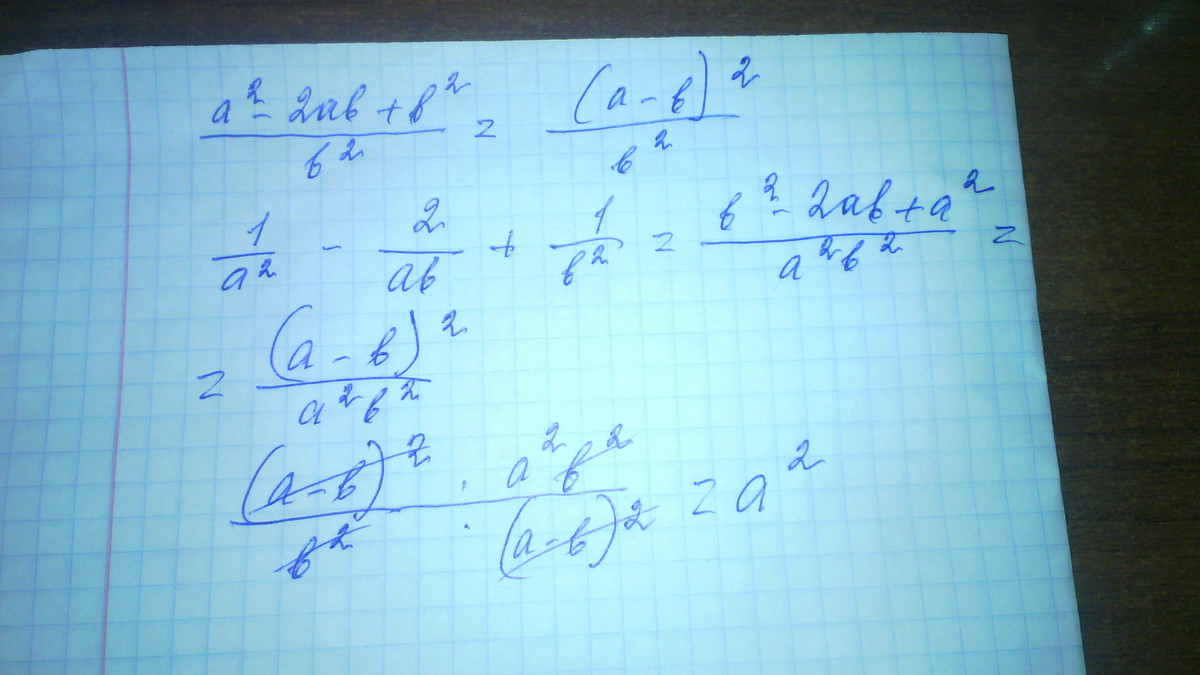 (a² - 2ab + b²)/b² = (a - b)²/b²
1/a² - 2/ab + 1/b² = (b² - 2ab + a²)/a²b² =
= (a - b)²/a²b²
(a - b)²/b² : a²b²/(a - b)² = a²